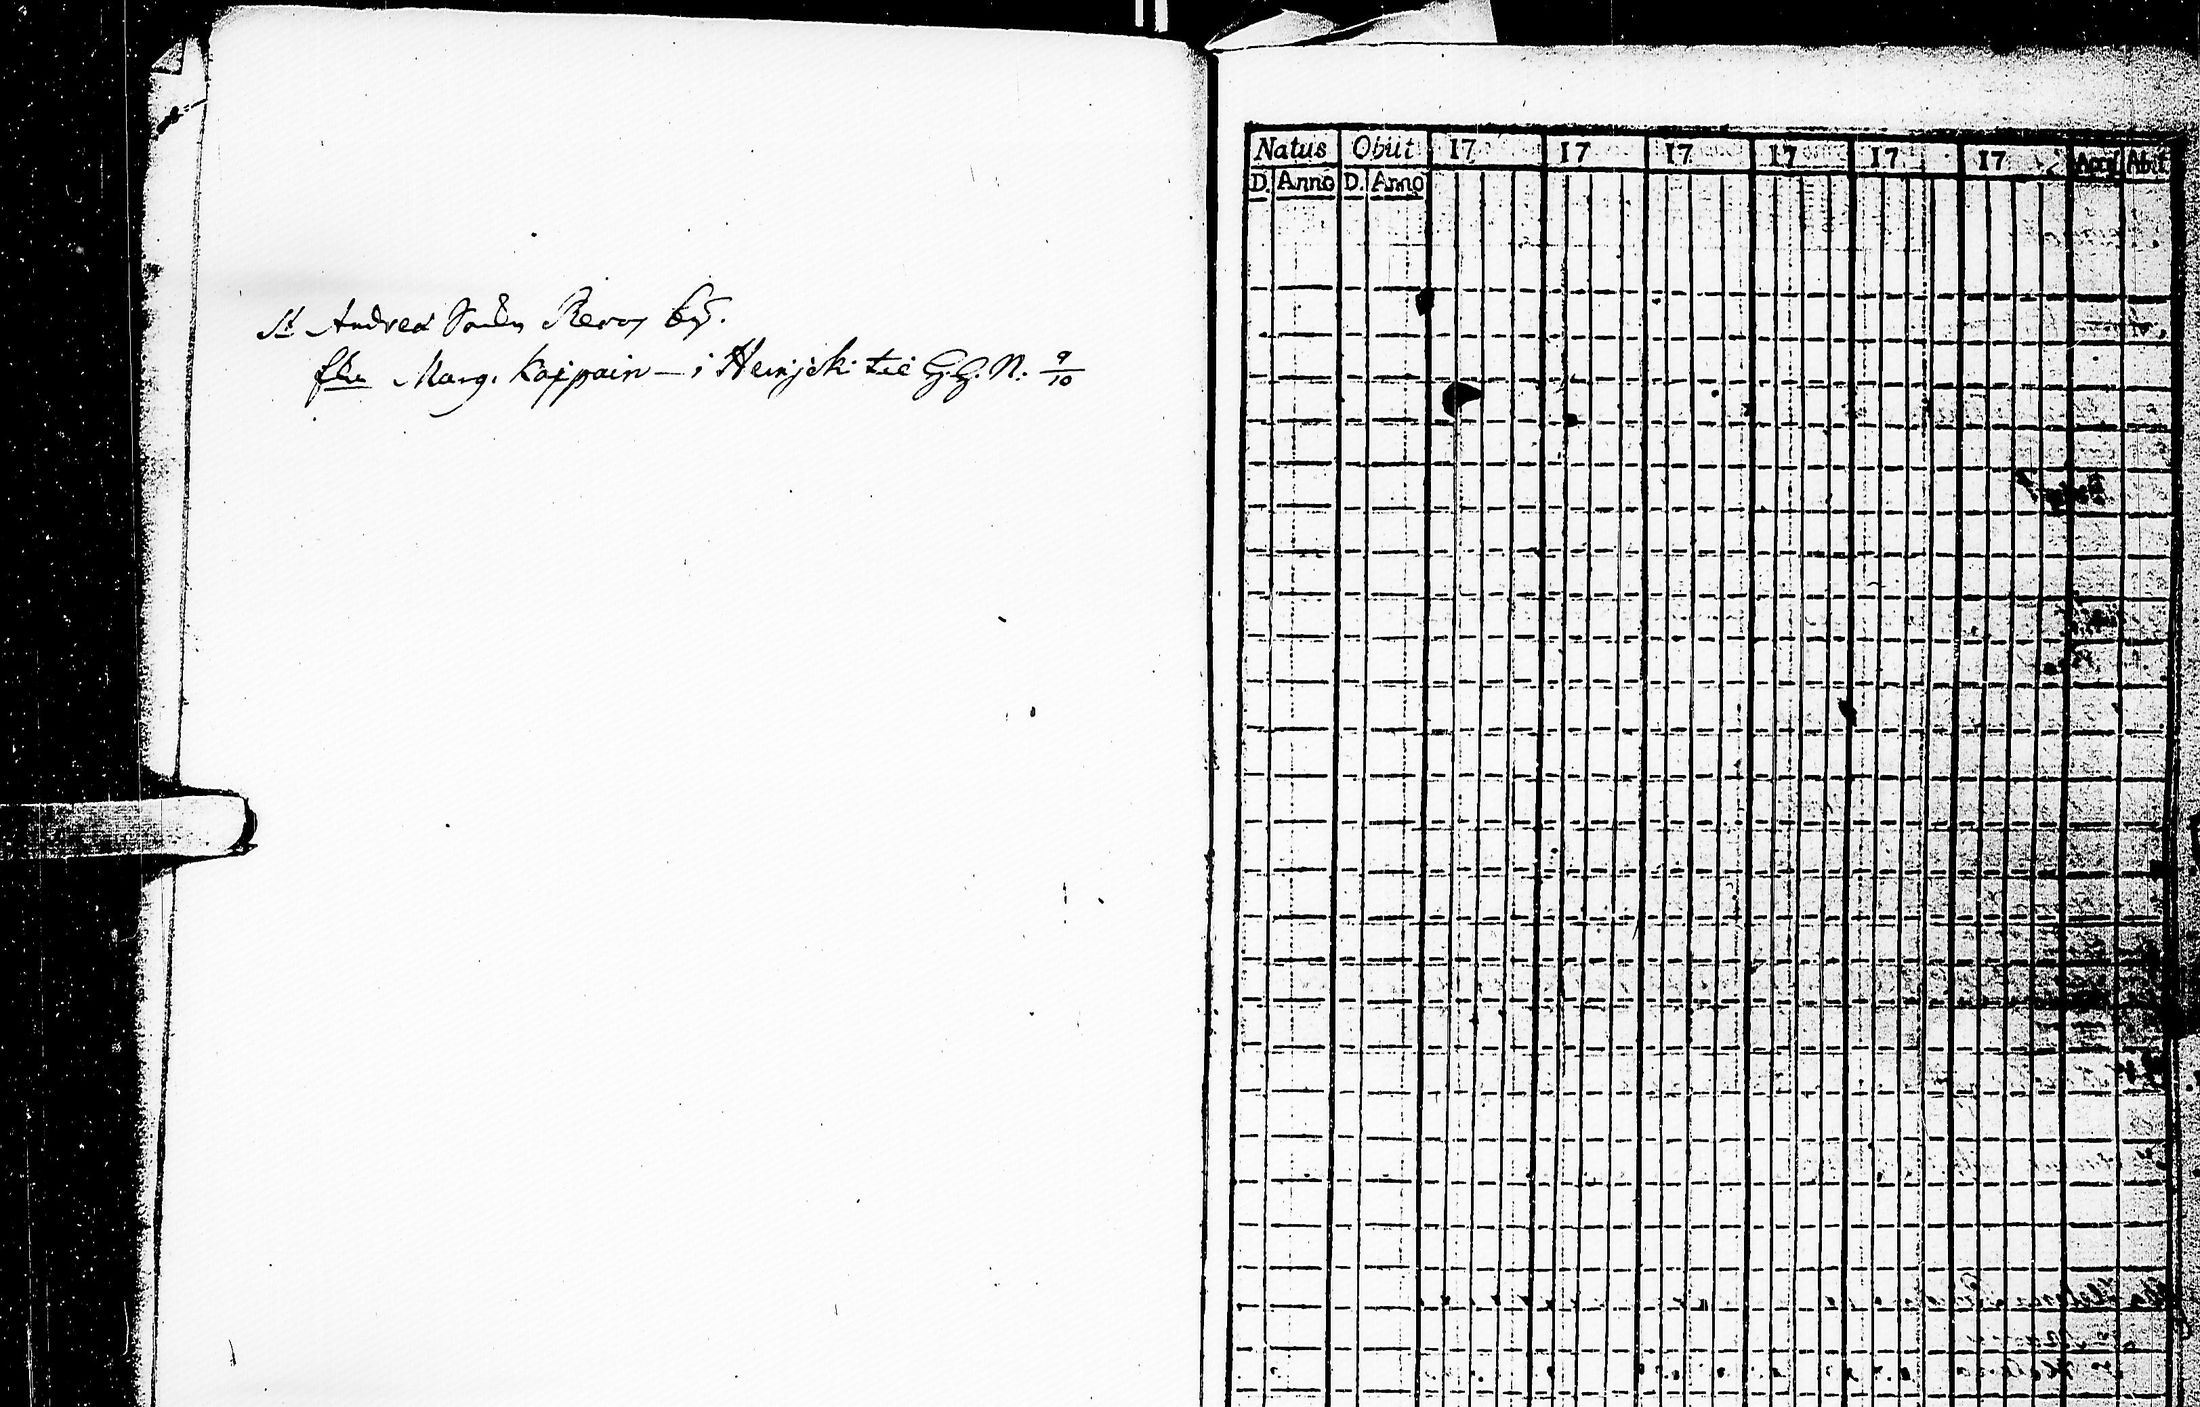 St Andrea Soldn Revoj by.
fhu Marg. Kajpain — i Heinjoki til G.G.N. 9/10
Natus Obiit 17 17 17 17 17 17 Abit
D. Anno D. Anno